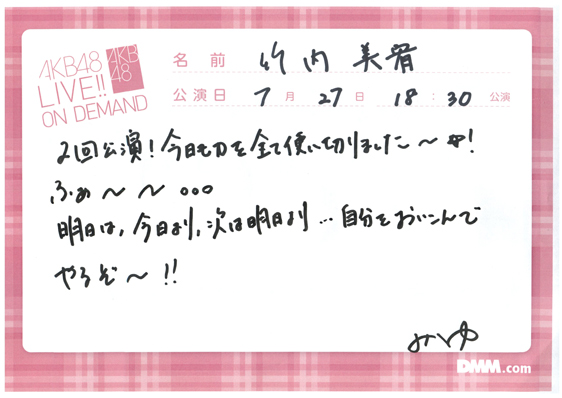 AKB48
LIVE!!
ON DEMAND
AKB
48
名前 竹内美宥
公演日 7月27日 18:30 公演
2回公演!今日も力を全て使い切りました〜☆!
ふぁ〜〜。。。
明日は、今日より、次は明日より…自分をおいこんで
やるぞ〜!!
みゆ
DMM.com